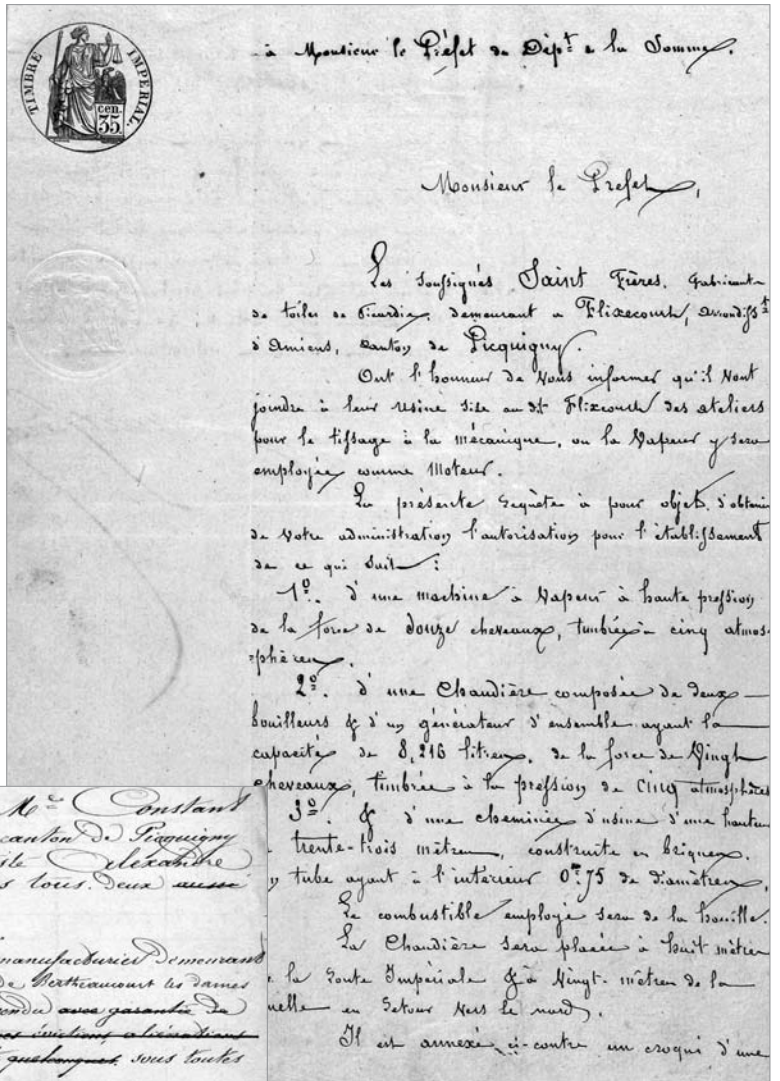 TIMBRE IMPERIAL.
cen.
35
à Monsieur le Préfet du Dépt de la Somme.
Monsieur le Prefet,
Les soussignés Saint Frères. Fabricants
de toiles de Picardie, demeurant a Flixecourt, arrondisst
d'Amiens, canton de Picquigny.
Ont l'honneur de vous informer qu'il vont
joindre à leur usine sise au dt Flixecourt des ateliers
pour le tissage à la mécanique, ou la vapeur y sera
employée comme moteur.
La présente requête à pour objet d'obtenir
de votre administration l'autorisation pour l'établissement
de ce qui suit :
1º. d'une machine à vapeur à haute pression
de la force de douze cheveaux, timbrée à cinq atmos-
=phères.
2º. d'une Chaudière composée de deux
bouilleurs & d'un générateur d'ensemble ayant la
capacité de 8,216 litres, de la force de Vingt
cheveaux, timbrée à la pression de cinq atmosphères
3º. & d'une cheminée d'usine d'une hauteur
trente-trois mètres, construite en briques.
tube ayant à l'intérieur 0m.75 de diamètres,
Le combustible employé sera de la houille.
La Chaudière sera placée à huit mètres
la Route Impériale & à Vingt-mètres de la
ruelle en retour vers le nord.
Il est annexé ci-contre un croqui d'une
Me Constant
canton de Picquigny
Alexandre
s tous deux aussi
manufacturier demeurant
de Bertheaucourt les dames
vendu avec garantie de
évictions, aliénations
quelconques sous toutes